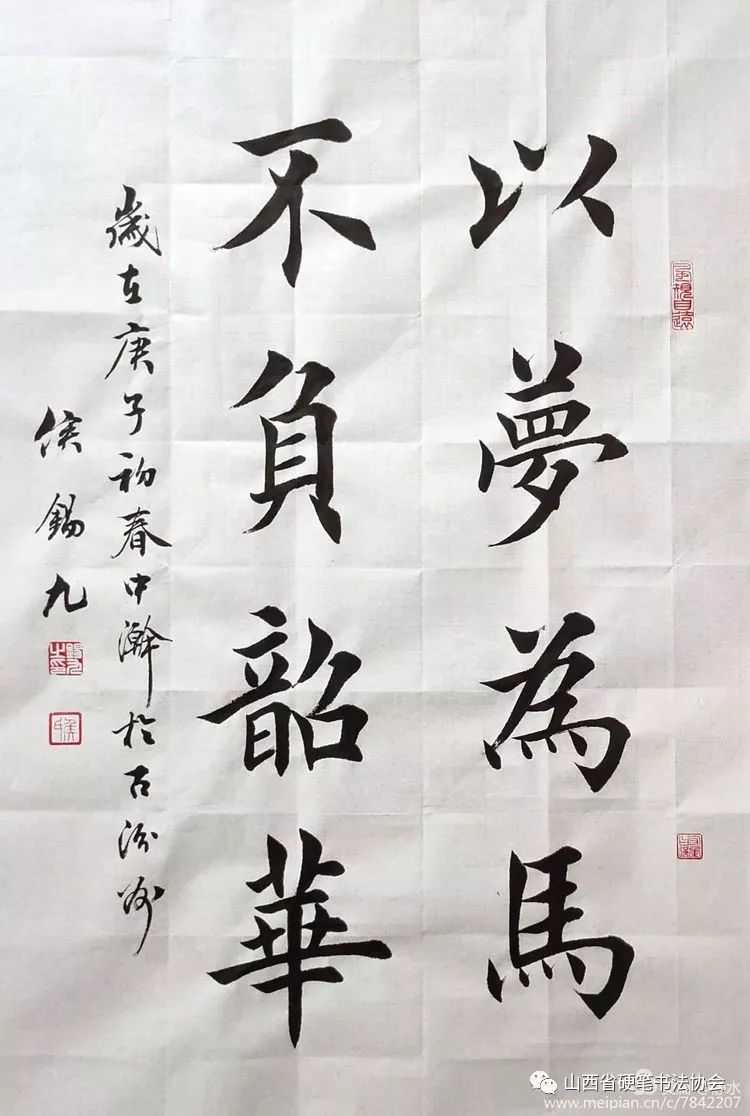 以夢為馬
不負韶華
歲在庚子初春中澣於古汾州
侯錫九
山西省硬笔书法协会
www.meipian.cn/c/7842207